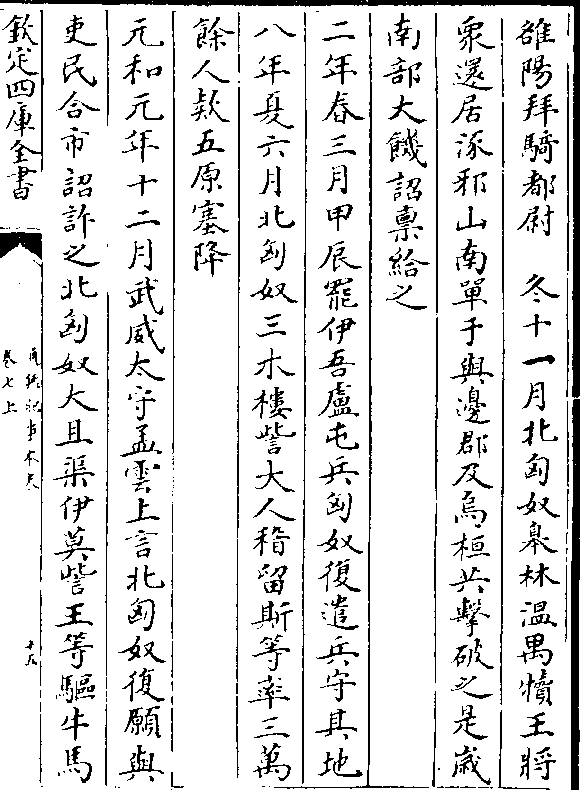 雒陽拜騎都尉　冬十一月北匈奴皋林溫禺犢王將
衆還居涿邪山南單于與邊郡及烏桓共擊破之是歲
南部大饑詔稟給之
二年春三月甲辰罷伊吾盧屯兵匈奴復遣兵守其地
八年夏六月北匈奴三木樓訾大人稽留斯等率三萬
餘人欵五原塞降
元和元年十二月武威太守孟雲上言北匈奴復願與
吏民合市詔許之北匈奴大且渠伊莫訾王等驅牛馬
欽定四庫全書
卷七上
十九